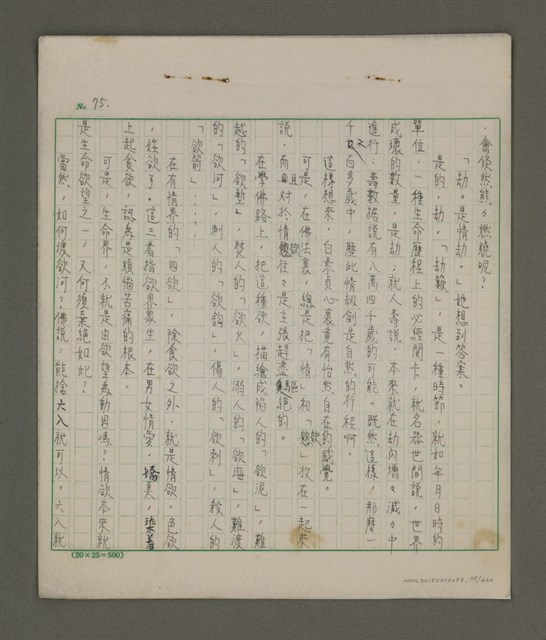 No. 75.
，會條然熊々燃燒呢？
「劫。是情劫。」她想到答案。
是的，劫，「劫難」，是一種時節，就如年月日時的
單位；一種生命歷程上的必經關卡，就名器世間說，世界
成壞的數量，是劫；就人壽說，本來就在劫內增々減々中
進行：壽數據說有八萬四千歲的可能。既然這樣，那麼一
千八百多歲中，歷此情劫倒是自然的行程啊。
這樣想來，白素貞心裏竟有怡然自在的感覺。
可是，在佛法裏，總是把「情」和「慾」放在一起來
說，而且對於情欲往々是主張趕盡驅絕的。
在學佛路上，把這種欲，描繪成陷人的「欲泥」，難
越的「欲塹」，焚人的「欲火」，溺人的「欲海」，難渡
的「欲河」，刺人的「欲鈎」，傷人的「欲刺」，殺人的
「欲箭」……。
在有情界的「四欲」，除食欲之外，就是情欲，色欲
，婬欲了。這三者指欲界衆生，在男女情愛，嬌美，染着
上起貪欲，認為是煩惱苦痛的根本。
可是，生命界，不就是由欲望為動因嗎？情欲本來就
是生命欲望之一，又何須棄絕如此？
當然，如何渡欲河？佛說，能捨六入就可以。六入就
(20×25=500)